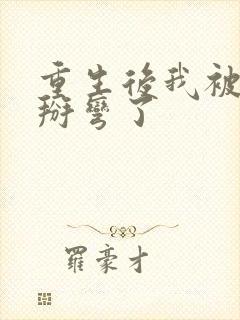 重生後我被
掰彎了
羅豪才